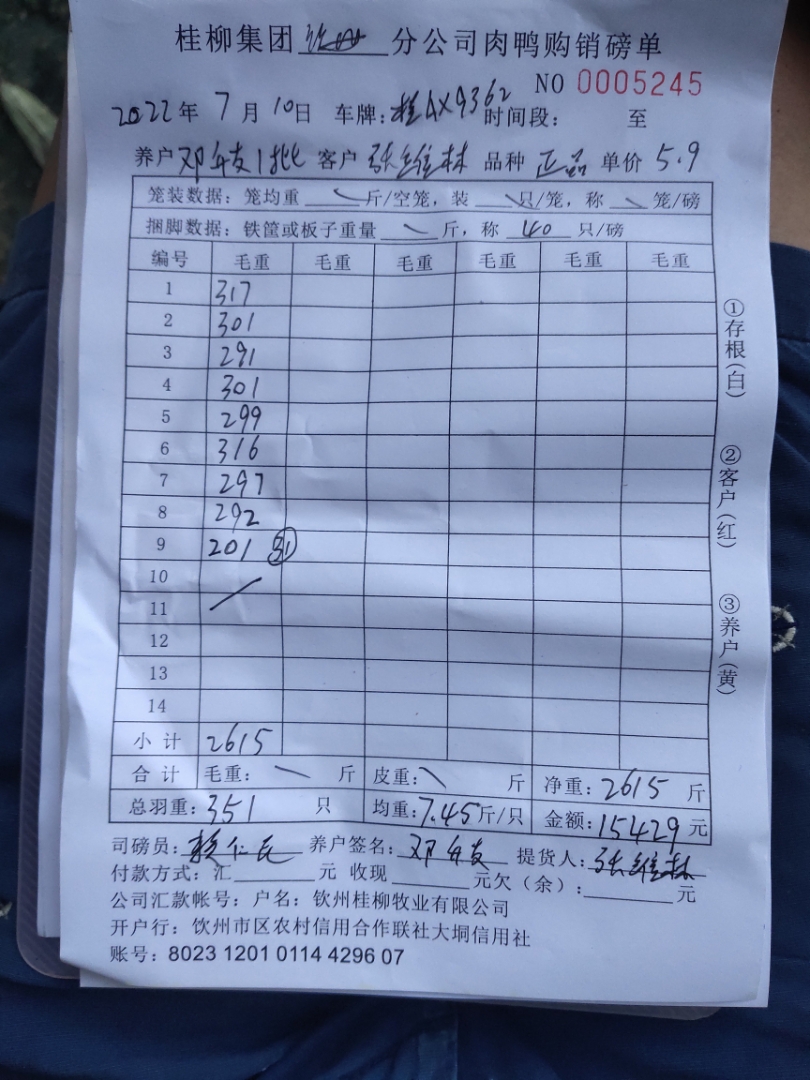 桂柳集团 钦州 分公司肉鸭购销磅单
NO 0005245
2022年 7月 10日 车牌:桂AX9362 时间段: 至
养户 邓 1批 客户 张维林 品种 正品 单价 5.9
笼装数据:笼均重 斤/空笼,装 只/笼,称 笼/磅
捆脚数据:铁筐或板子重量 斤,称 40 只/磅
编号 毛重 毛重 毛重 毛重 毛重 毛重
1 317
2 301
3 291
4 301
5 299
6 316
7 297
8 292
9 201 31
10
11
12
13
14
小计 2615
合计 毛重: 斤 皮重: 斤 净重:2615 斤
总羽重:351 只 均重:7.45斤/只 金额:15429元
司磅员: 养户签名:邓 提货人:张维林
付款方式:汇 元 收现 元欠(余): 元
公司汇款帐号:户名:钦州桂柳牧业有限公司
开户行:饮州市区农村信用合作联社大垌信用社
账号:8023 1201 0114 4296 07
①存根(白)
②客户(红)
③养户(黄)